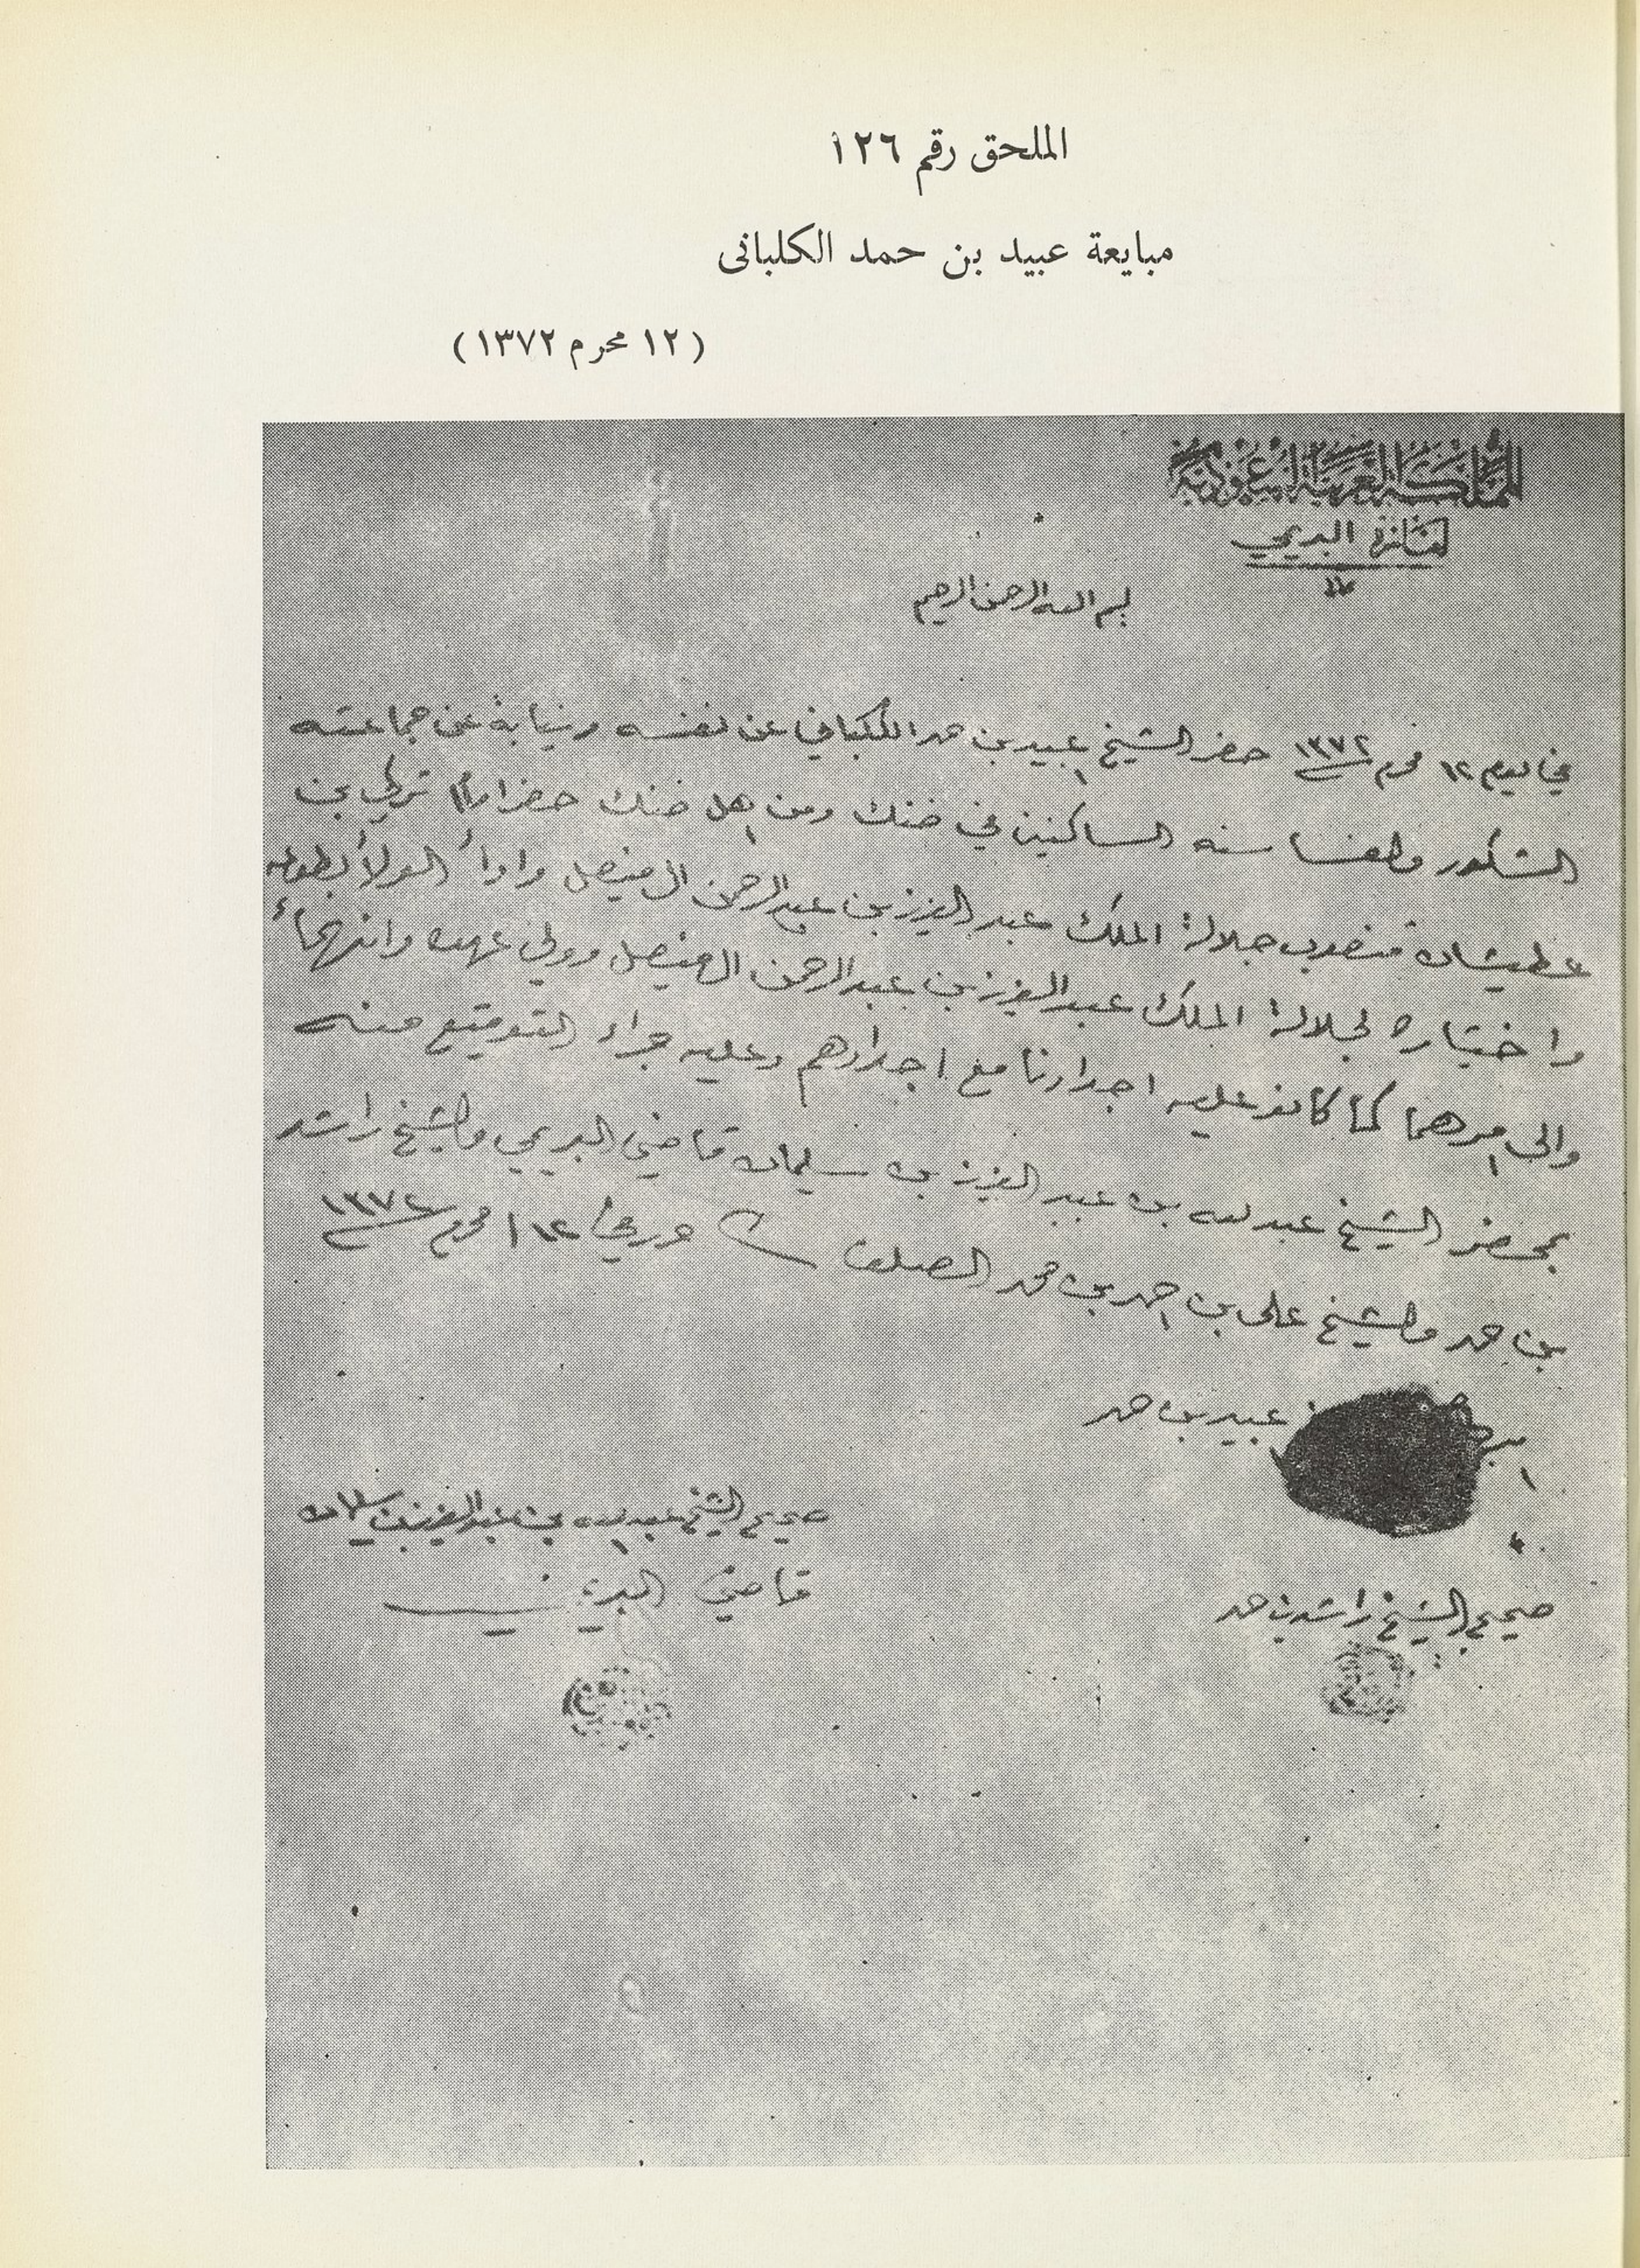 الملحق رقم ١٢٦
مبايعة عبيد بن حمد الكلبانى
(١٢ محرم ١٣٧٢)
المملكة العربية السعودية
البريمي
بسم الله الرحمن الرحيم
في يوم ١٢ محرم ١٣٧٢ حضر الشيخ عبيد بن حمد الكلباني عن نفسه ونيابة عن جماعته
الساكنين في ضنك ومن اهل ضنك حضر امام تركي بن
عطيشان مندوب جلالة الملك عبد العزيز بن عبد الرحمن ال فيصل وادا الولا بطوعه
واختياره لجلالة الملك عبد العزيز بن عبد الرحمن الفيصل وولي عهده وانهما
والى امرهما كما كانو عليه اجدادنا مع اجدادهم وعليه جراء التوقيع منه
بمحضر الشيخ عبد الله بن عبد العزيز بن سليمان قاضي البريمي والشيخ راشد
بن حمد والشيخ علي بن احمد بن محمد الصلف حرر في ١٢ محرم ١٣٧٢
عبيد بن حمد
صحيح الشيخ عبد الله بن عبد العزيز بن سليمان
قاضي البريمي
صحيح الشيخ راشد بن حمد